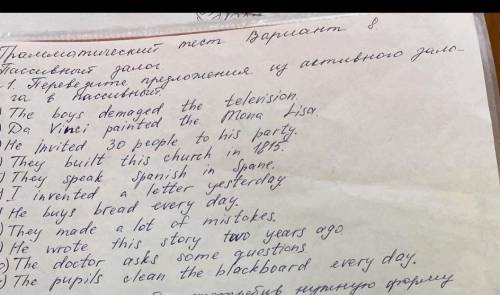 Грамматический тест Вариант 8
Пассивный залог
1. Переведите предложения из активного зало-
га в пассивный.
) The boys demaged the television.
) Da Vinci painted the Mona Lisa.
) He invited 30 people to his party.
) They built this church in 1815.
) They speak Spanish in Spane.
) I invented a letter yesterday
) He buys bread every day.
) They made a lot of mistakes.
) He wrote this story two years ago
) The doctor asks some questions
) The pupils clean the blackboard every day.
нужную форму